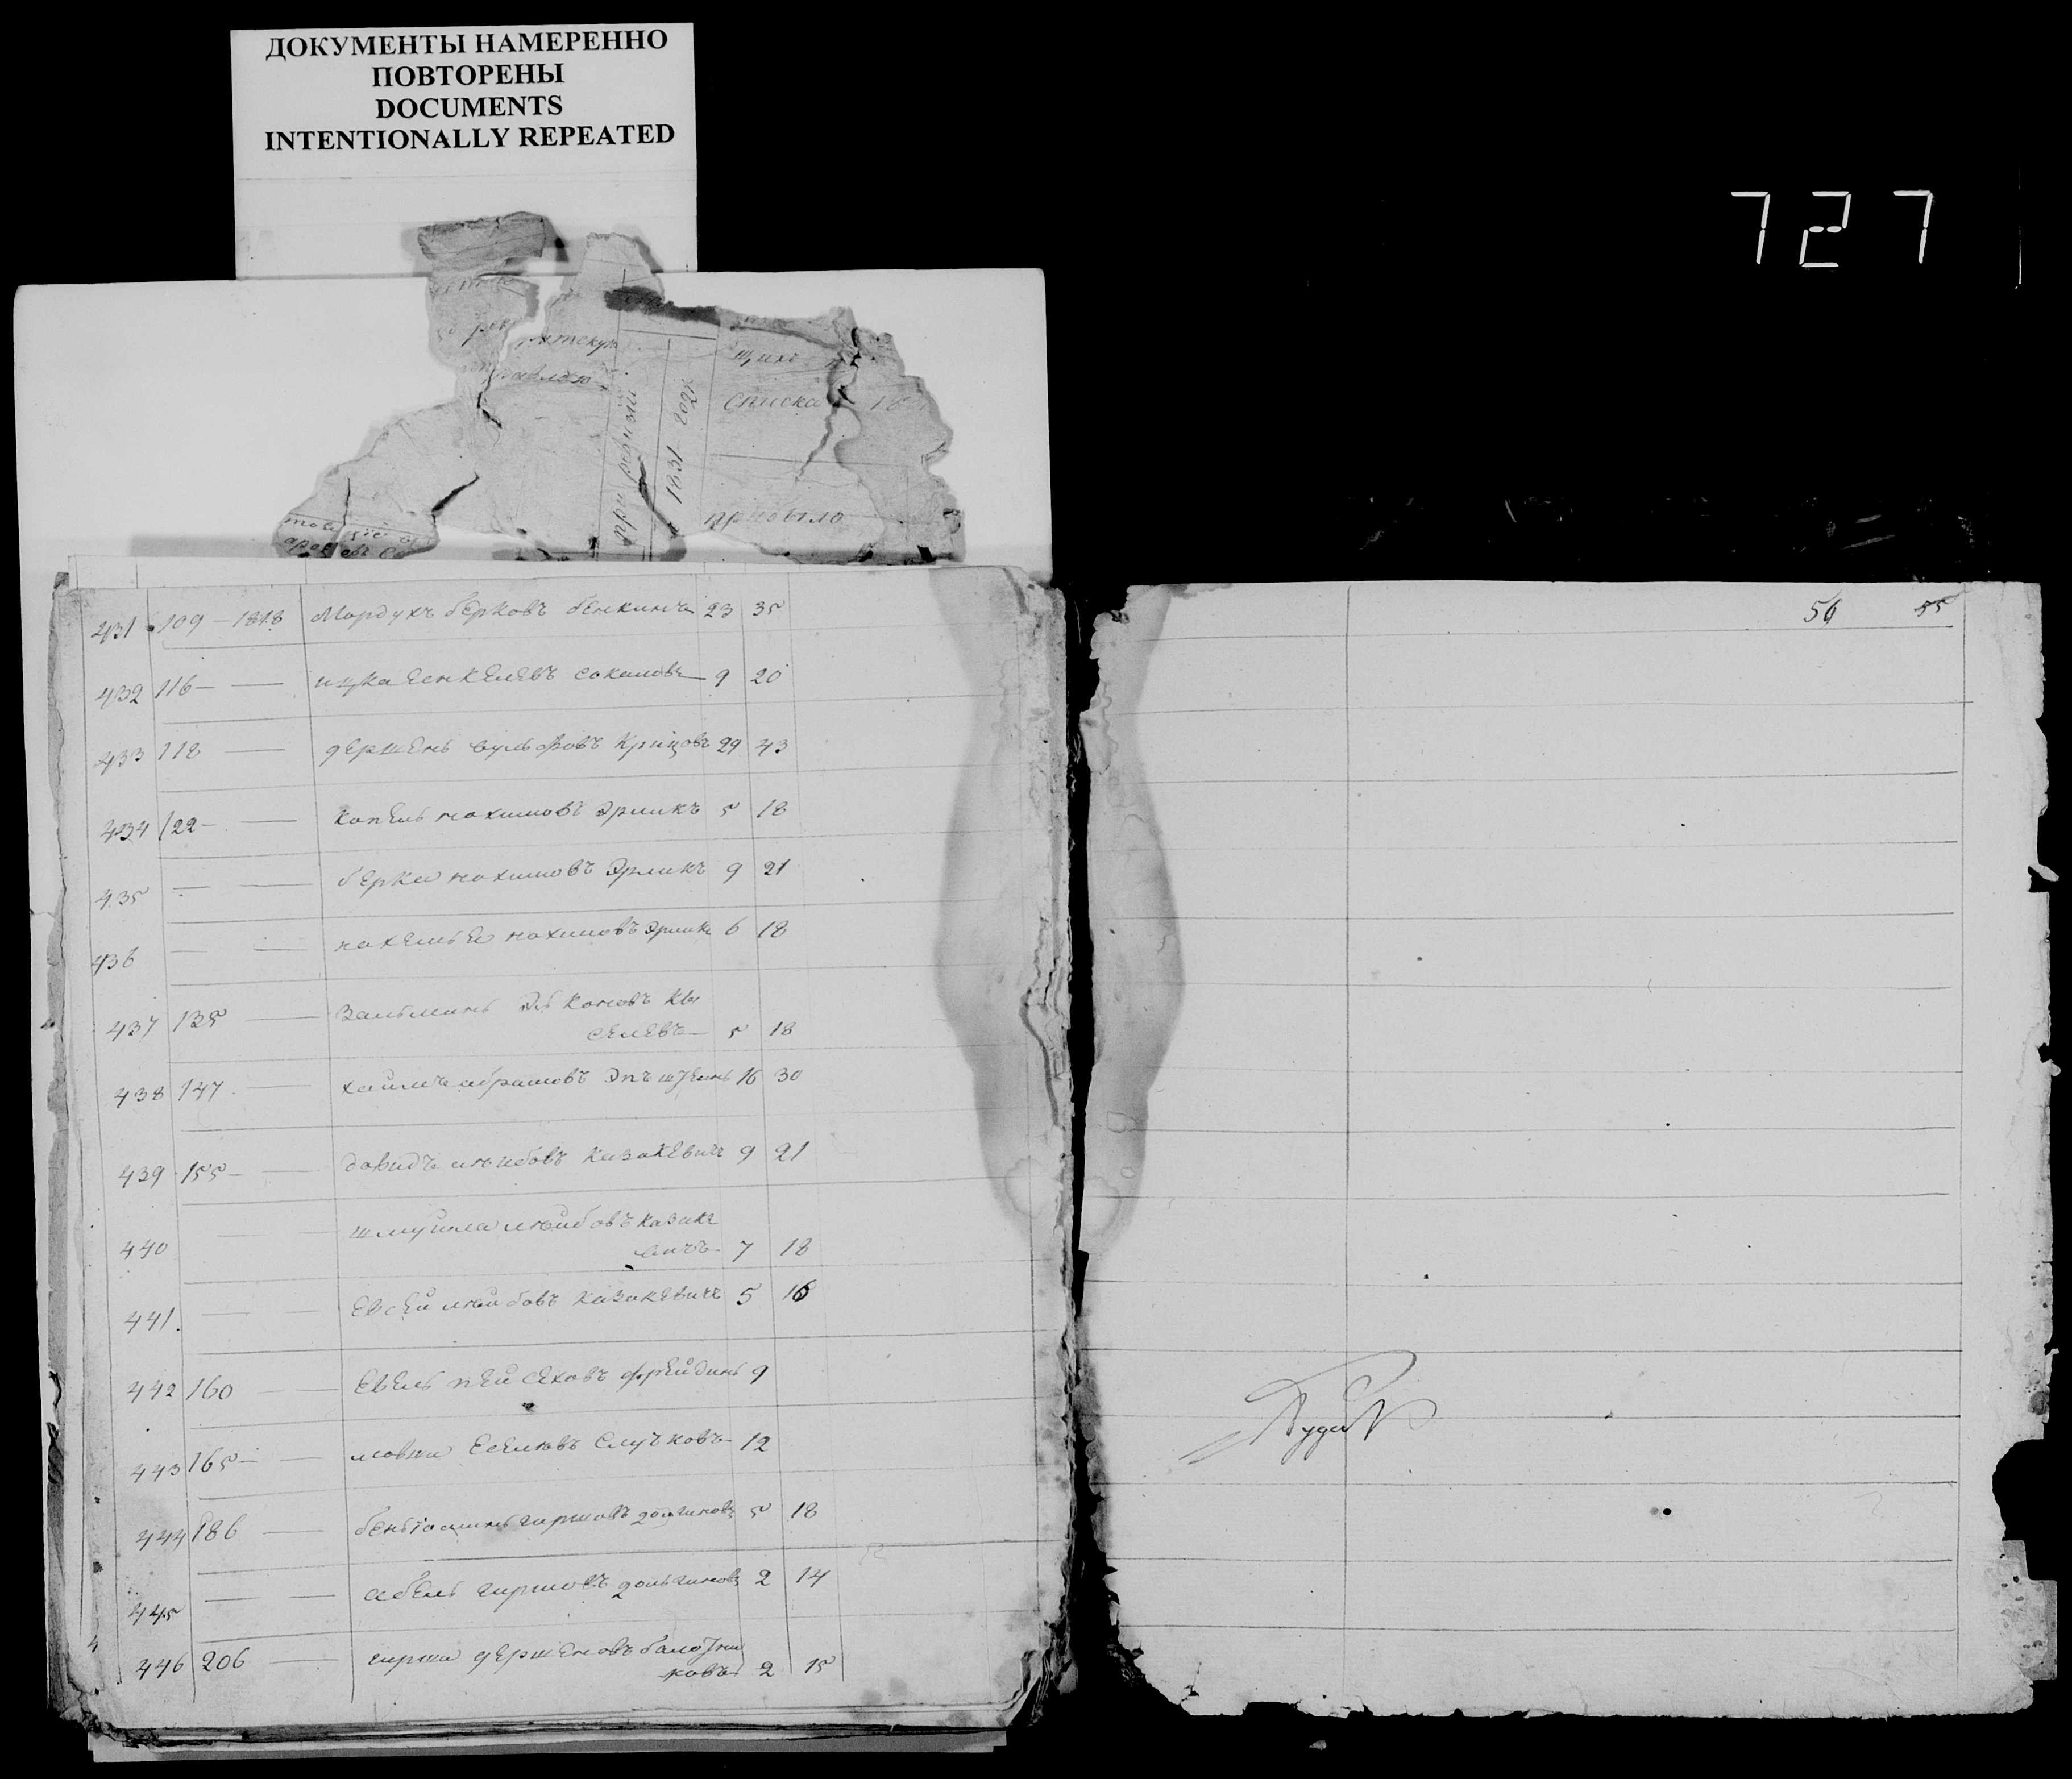 ДОКУМЕНТЫ НАМЕРЕННО
ПОВТОРЕНЫ
DOCUMENTS
INTENTIONALLY REPEATED
727
щихъ
списка 18
при ревизіи
1831 года
прибыло
56 55
431 109 — 1818 Мордухъ берковъ бенкинъ 23 35
432 116 — — ицка Бенкелевъ Соколовъ 9 20
433 118 — гершень вульфовъ Крицовъ 29 43
434 122 — — копель нохимовъ Эрликъ 5 18
435 — — берка нохимовъ Эрликъ 9 21
436 — — нохимовъ Эрликъ 6 18
437 135 — Зальманъ Элькановъ Кы
селевъ — 5 18
438 147 — хаимъ абрамовъ Эпъштеинъ 16 30
439 155 — — давидъ лейбовъ Казакевичъ 9 21
440 — — шмуила лейбовъ казаке
вичъ 7 18
441. — — Евсей лейбовъ Казакевичъ 5 16
442 160 — — Евель пейсеховъ фрейдинъ 9
443 165 — — мовша Случковъ — 12
444 186 — беньіоминъ гиршовъ долгиновъ 5 18
445 — — абель гиршовъ долгиновъ 2 14
446 206 — гирша гершеновъ болотни
ковъ 2 15